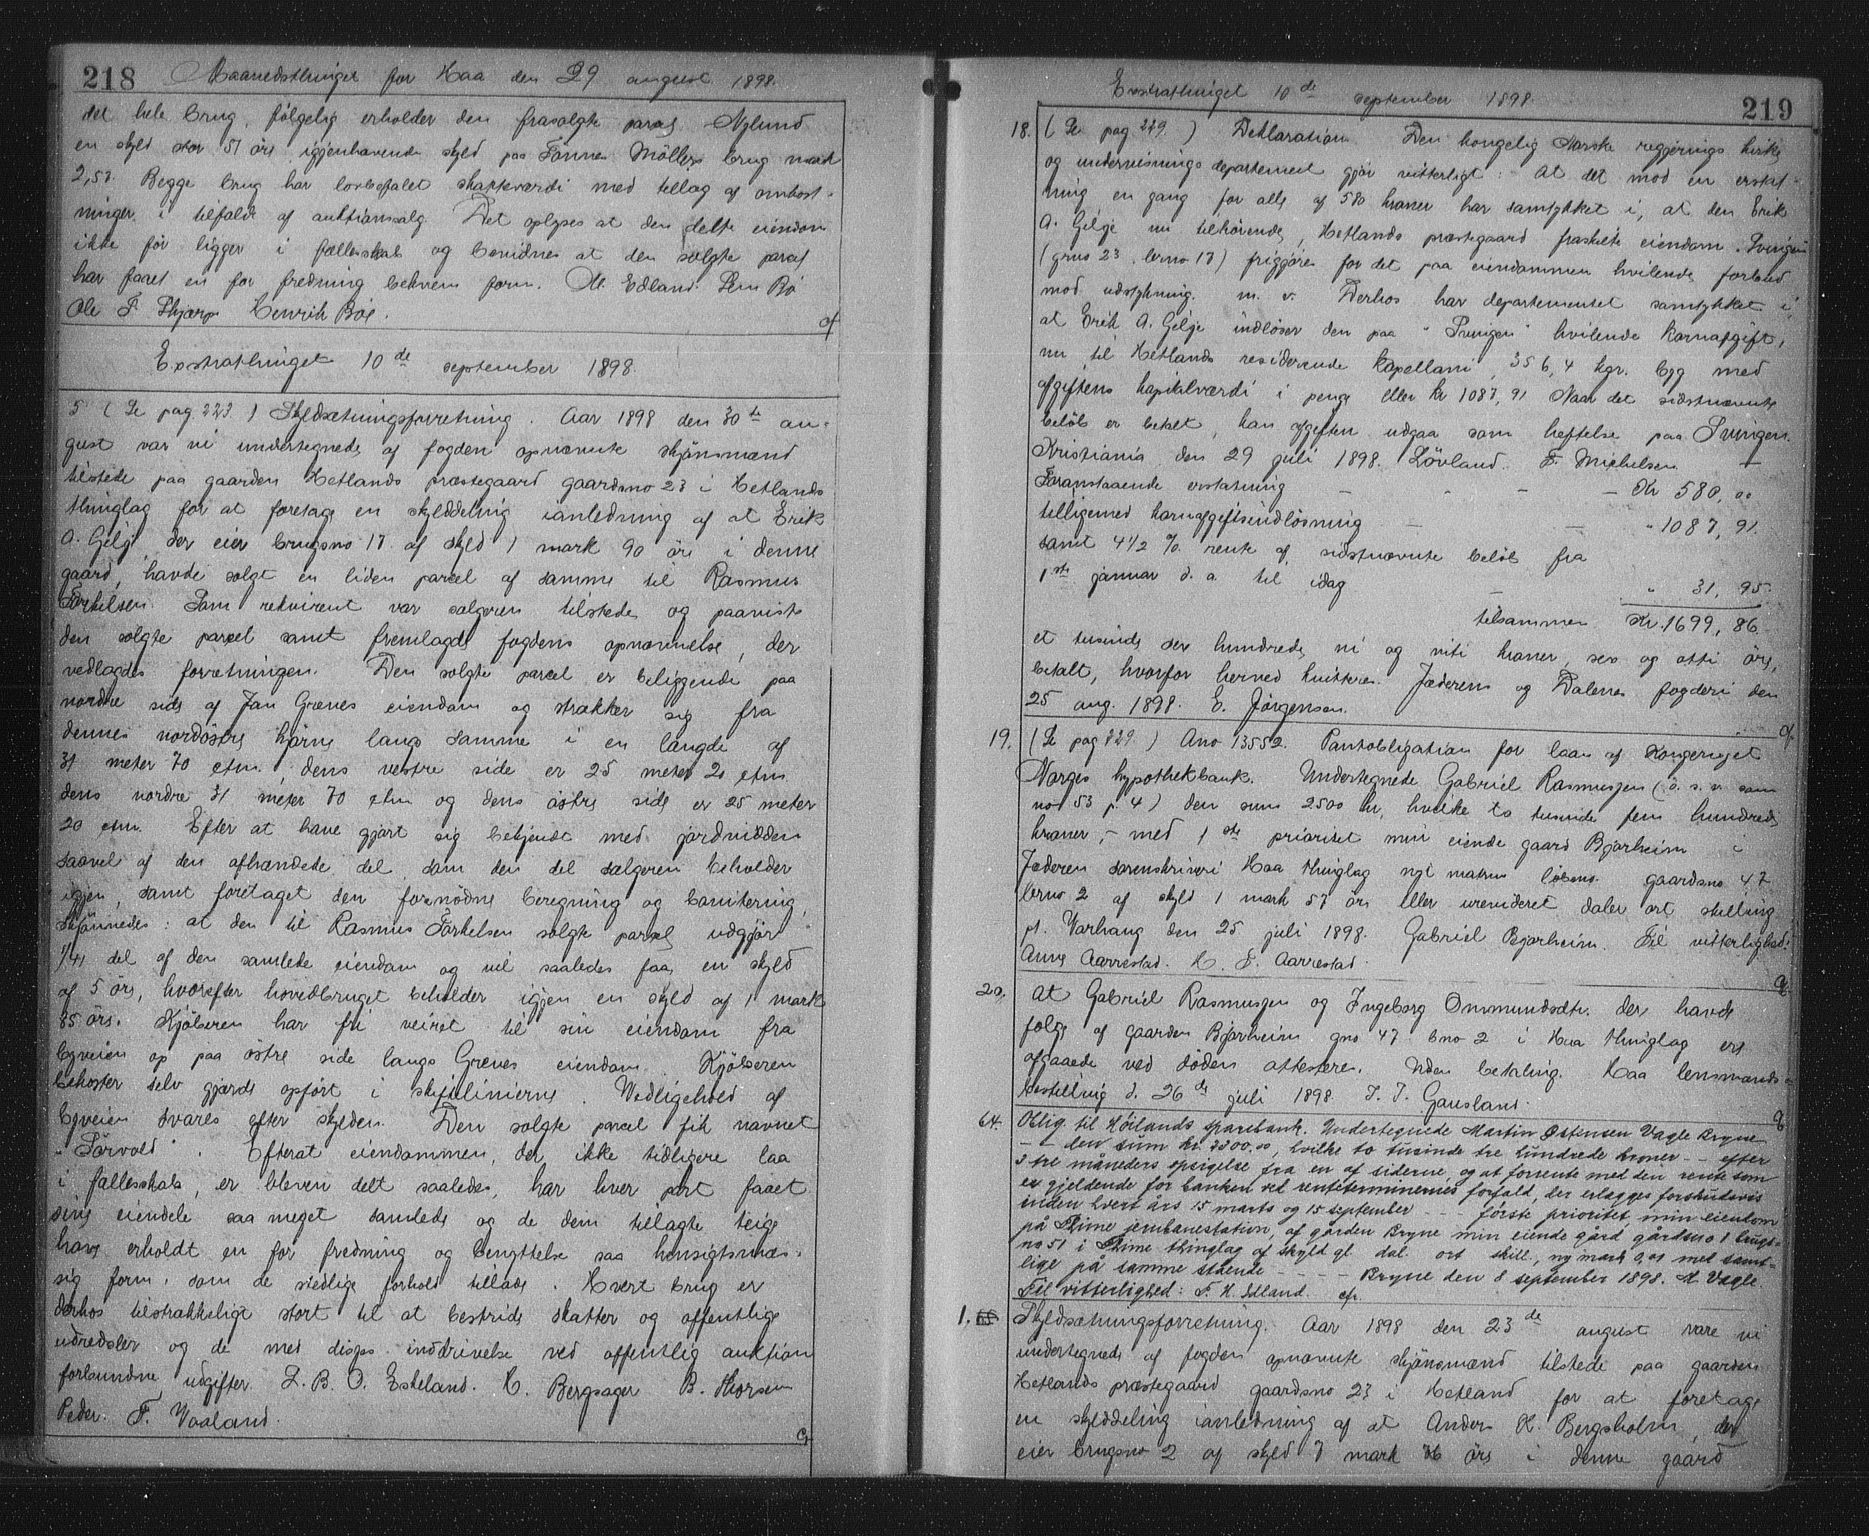 218 Maanedsthinget for Haa den 29 august 1898.
det hele brug, følgelig erholder den frasolgte parsel Nylund
en skyld stor 51 øre, igjenhavende skyld paa Tønnes Möllers brug mark
2,53. Begge brug har lovbefalet skatteværdi med tillæg af omkost-
ninger i tilfælde af auktionssalg. Det oplyses at den delte eiendom
ikke før ligger i fællesskab og bevidnes at den solgte parsel
har faaet en for fredning bekvem form. M. Edland. Sem Bö
Ole F. Skjærpe Henrik Böe.
Exstrathinget 10de september 1898.
5 (Se pag 223.) Skyldsætningsforretning. Aar 1898 den 30te au-
gust var vi undertegnede af fogden opnævnte skjönsmænd
tilstede paa gaarden Hetlands præstegaard gaardsno 23 i Hetlands
thinglag for at foretage en skylddeling i anledning af at Erik
A. Gilje der eier brugsno 17 af skyld 1 mark 90 øre i denne
gaard, havde solgt en liden parcel af samme til Rasmus
Torkelsen. Som rekvirent var sælgeren tilstede og paaviste
den solgte parcel samt fremlagde fogdens opnævnelse, der
vedlagdes forretningen. Den solgte parcel er beliggende paa
nordre side af Jan Grønes eiendom og strækker sig fra
dennes nordöstre hjörne langs samme i en længde af
31 meter 70 ctm., dens vestre side er 25 meter 20 ctm
dens nordre 31 meter 70 ctm og dens östre side er 25 meter
20 ctm. Efter at have gjort sig bekjendt med jordvidden
saavel af den afhændede del som den del sælgeren beholder
igjen, samt foretaget den fornödne beregning og bonitering,
skjønnedes: at den til Rasmus Torkelsen solgte parsel udgjør
1/41 del af den samlede eiendom og vil saaledes faa en skyld
af 5 øre, hvorefter hovedbruget beholder igjen en skyld af 1 mark
85 øre. Kjöberen har fri veiret til sin eiendom fra
bgveien op paa östre side langs Grønes eiendom. Kjöberen
bekoster selv gjærde opført i skiftelinierne. Vedligehold af
bgveien svares efter skylden. Den solgte parcel fik navnet
"Sørvold". Efterat eiendommen, der ikke tidligere laa
i fælleskab, er bleven delt saaledes, har hver part faaet
sine eiendele saa meget samlede og de dem tillagte teige
have erholdt en for fredning og benyttelse saa hensigtsmæs-
sig form, som de stedlige forhold tillade. Hvert brug er
derhos tilstrækkeligt stort til at bestride skatter og offentlige
udredsler og de med disses inddrivelse ved offentlig auktion
forbundne udgifter. L. B. O. Eskeland. H. Bergsager B. Thorsen
Peder. F. Vaaland.
Exstrathinget 10de september 1898. 219
18. (Se pag 229.) Deklaration. Den kongelig Norske regjerings kirke
og undervisningsdepartement gjør vitterligt: At det mod en erstat-
ning en gang for alle af 580 kroner har samtykket i, at den Erik
A. Gilje nu tilhörende, Hetlands præstegaard fraskilte eiendom Svingen
(gno 23 brno 17) frigjöres for det paa eiendommen hvilende forbud
mod udstykning m. v. Derhos har departementet samtykket i,
at Erik A. Gilje indlöser den paa "Svingen" hvilende kornafgift,
nu til Hetlands residerende kapellani, 356,4 kgr. byg med
afgiftens kapitalværdi i penge eller kr 1087,91 Naar det sidstnævnte
beløb er betalt, kan afgiften udgaa som heftelse paa Svingen.
Kristiania den 29 juli 1898. Lövland. F. Michelsen
Foranstaaende erstatning – – – – Kr 580,00
tilligemed kornafgiftsindlösning – – " 1087,91
samt 4 1/2 % rente af sidstnævnte beløb fra
1ste januar d. a. til idag – " 31,95
tilsammen Kr. 1699,86
et tusinde sex hundrede ni og niti kroner sex og otti øre,
betalt, hvorfor herved kvitteres. Jæderens og Dalenes fogderi den
25 aug. 1898. E. Jørgensen.
19. (Se pag 229.) Ano 13552. Pantobligation for laan af Kongeriget
Norges hypothekbank. Undertegnede Gabriel Rasmussen (o. s. v. som
no 53 p. 4) den sum 2500 kr, hvilke to tusinde fem hundrede
kroner, – med 1ste prioritet min eiende gaard Bjorheim i
Jæderen sorenskriveri Haa thinglag nyt matrn löbeno gaardsno 47
brno 2 af skyld 1 mark 57 øre eller urevideret daler ort skilling
pt. Varhaug den 25 juli 1898. Gabriel Bjorheim. Til vitterlighed:
Anne Aarrestad. H. S. Aarrestad.
20. At Gabriel Rasmussen og Ingeborg Ommundsdtr. der havde
folge af gaarden Bjorheim gno 47 bno 2 i Haa thinglag ere
afgaaede ved döden attesteres. Uden betaling. Haa lensmands-
bestilling d. 26de juli 1898. J. J. Gausland.
64. Oblig. til Höilands sparebank. Undertegnede Martin Østensen Vagle Bryne
– – den sum kr 2300,00, hvilke to tusinde tre hundrede kroner – – efter
3 tre måneders opsigelse fra en af siderne og at forrente med den rente som
er gjeldende for banken ved renteterminernes forfald, der erlægges forskudsvis
inden hvert års 15 marts og 15 september – – – første prioritet min eiendom
på Thime jernbanestation, af gården Bryne min eiende gård gårdsno 1 brugs-
no 51 i Thime thinglag af skyld gl. dal. ort skill, ny mark 0,01 med samt-
lige på samme stående – – – – Bryne den 8 september 1898. M Vagle.
Til vitterlighed: F. H. Edland.
1. Skyldsætningsforretning. Aar 1898 den 23de august vare vi
undertegnede af fogden opnævnte skjönsmænd tilstede paa gaarden
Hetlands præstegaard gaardsno 23 i Hetland for at foretage
en skylddeling i anledning af at Anders K. Bergsholm, der
eier brugsno 2 af skyld 7 mark 76 øre i denne gaard